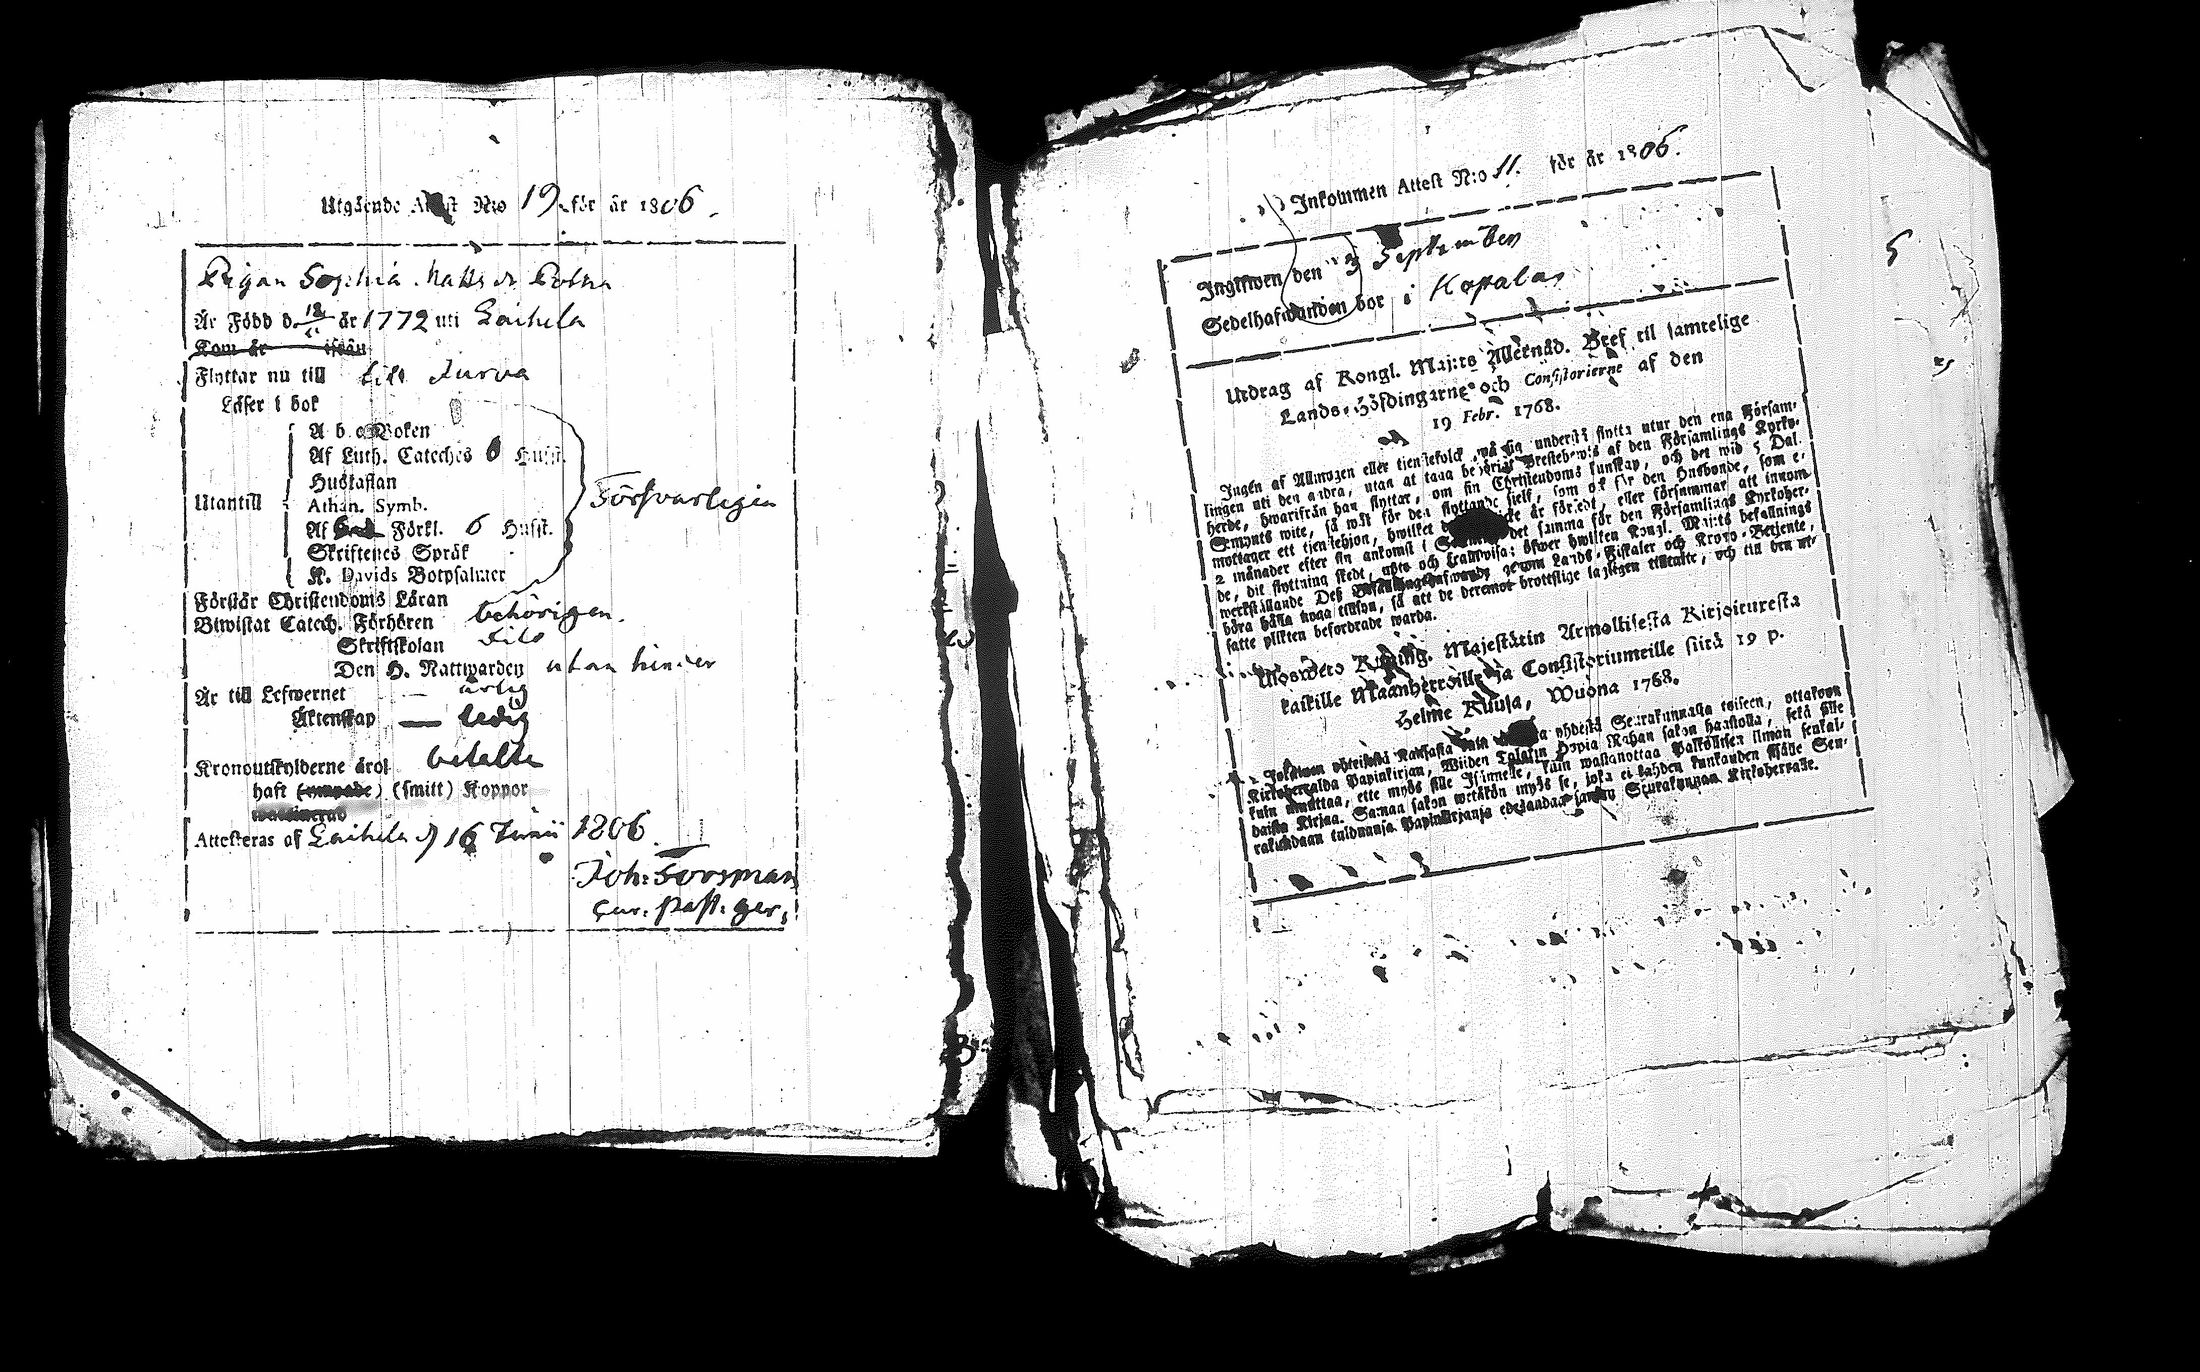 Utgående Attest N:o 19. för år 1806.
Pigan Sophia Matts dr
Är Född d. 18/11 år 1772 uti Laihela
Kom år ifrån
Flyttar nu till till Jurva
Läser i bok
A b c Boken
Af Luth. Cateches 6 Hufst.
Hustaflan
Utantill
Athan. Symb.
Försvarligen
Af Förkl. 6 Hufst.
Skriftenes Språk
K. Davids Botpsalmer
Förstår Christendoms Läran
Biwistat Catech. Förhören behörigen.
Skriftskolan dito
Den H. Nattwarden utan hinder
Är till Lefwernet — ärlig
Äktenskap — ledig
Kronoutskylderne äro betalte
haft (ympade) (smitt) Koppor
Attesteras af Laihela d 16 Junii 1806.
Joh: Forsman
Cur: Past: ger:
Inkommen Attest N:o 11. för år 1806.
Ingifwen den 3 September
Sedelhafwanden bor i Kopalas
Utdrag af Kongl. Maj:ts Allernåd. Bref til samtelige
Lands-Höfdingarne och Consistorierne af den
19 Febr. 1768.
Ingen af Allmogen eller tjenstefolck må sig understå flytta utur den ena Försam-
lingen uti den andra, utan at taga behörigt Prestebewis af den Församlings Kyrko-
herde, hwarifrån han flyttar, om sin Christendoms kunskap, och det wid 5 Dal.
S:mynts wite, så wäl för den flyttande sielf, som ock för den Husbonde, som e-
mottager ett tjenstehjon, hwilket icke är försedt, eller försummar att innom
2 månader efter sin ankomst i det samma för den Församlings Kyrkoher-
de, dit flyttning skedt, upte och framwisa; öfwer hwilken Kongl. Maj:ts befallnings
werkställande Deß genom Lands-Fiskaler och Krono-Betjente,
böra hålla noga tillsyn, så att de deremot brottslige lagligen tilltalte, och till den ut-
satte plikten befordrade warda.
Ulosweto Kuning. Majestätin Armollisesta Kirjoituresta
kaikille Maanherroille ja Consistoriumeille siitä 19 p.
Helme Kuusa, Wuona 1768.
yhteisestä Kansasta yhdestä Seurakunnasta toiseen, ottakoon
Kirkoherralda Papinkirjan, Wiiden Talarin Hopia Rahan sakon haastolla, sekä sille
kuin muuttaa, ette myös sille Isännelle, kuin wastanottaa Palkollisen ilman senkal-
daista Kirjaa. Samaa sakon wetäkön myös se, joka ei kahden kuukauden sisälle Seu-
rakundaan tulduansa Papinkirjanja edesandaa saman Seurakunnan Kirkoherralle.